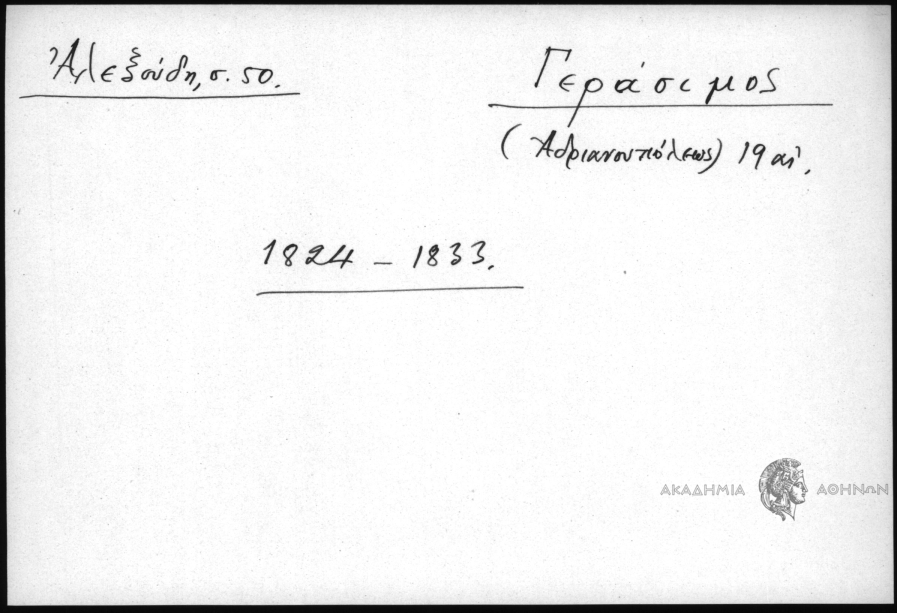 Ἀλεξούδη, σ. 50.
Γεράσιμος
(Ἀδριανουπόλεως) 19 αἰ.
1824 – 1833.
ΑΚΑΔΗΜΙΑ ΑΘΗΝΩΝ